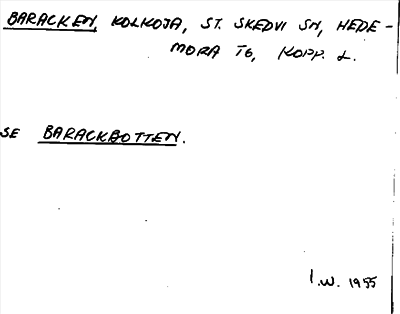 BARACKEN, KOLKOJA, ST. SKEDVI SN, HEDE-
MORA TG, KOPP. L.
SE BARACKBOTTEN.
I.W. 1955